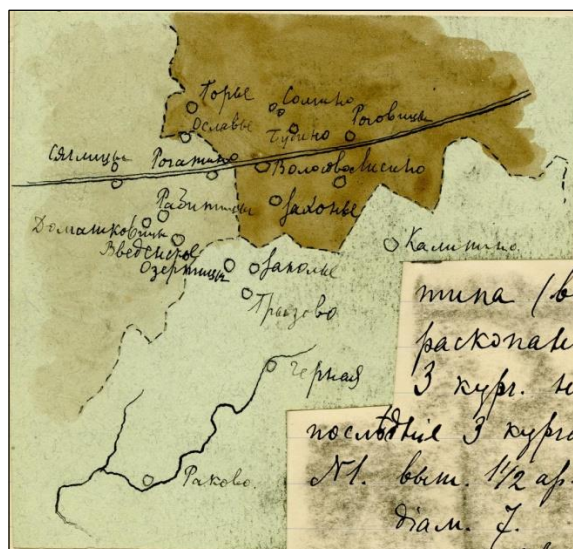 Горье
Сомино
Ославье
Губино
Роговицы
Сяглицы
Рогатино
Волосово
Лисино
Рабитицы
Захонье
Домашковицы
Введенское
Калитино
Озертицы
Заполье
Грызово
типа (в
раскопан
3 кург. не
Черная
последние 3 курга
№1. выш. 1 1/2 ар.
Раково.
діам. 7.